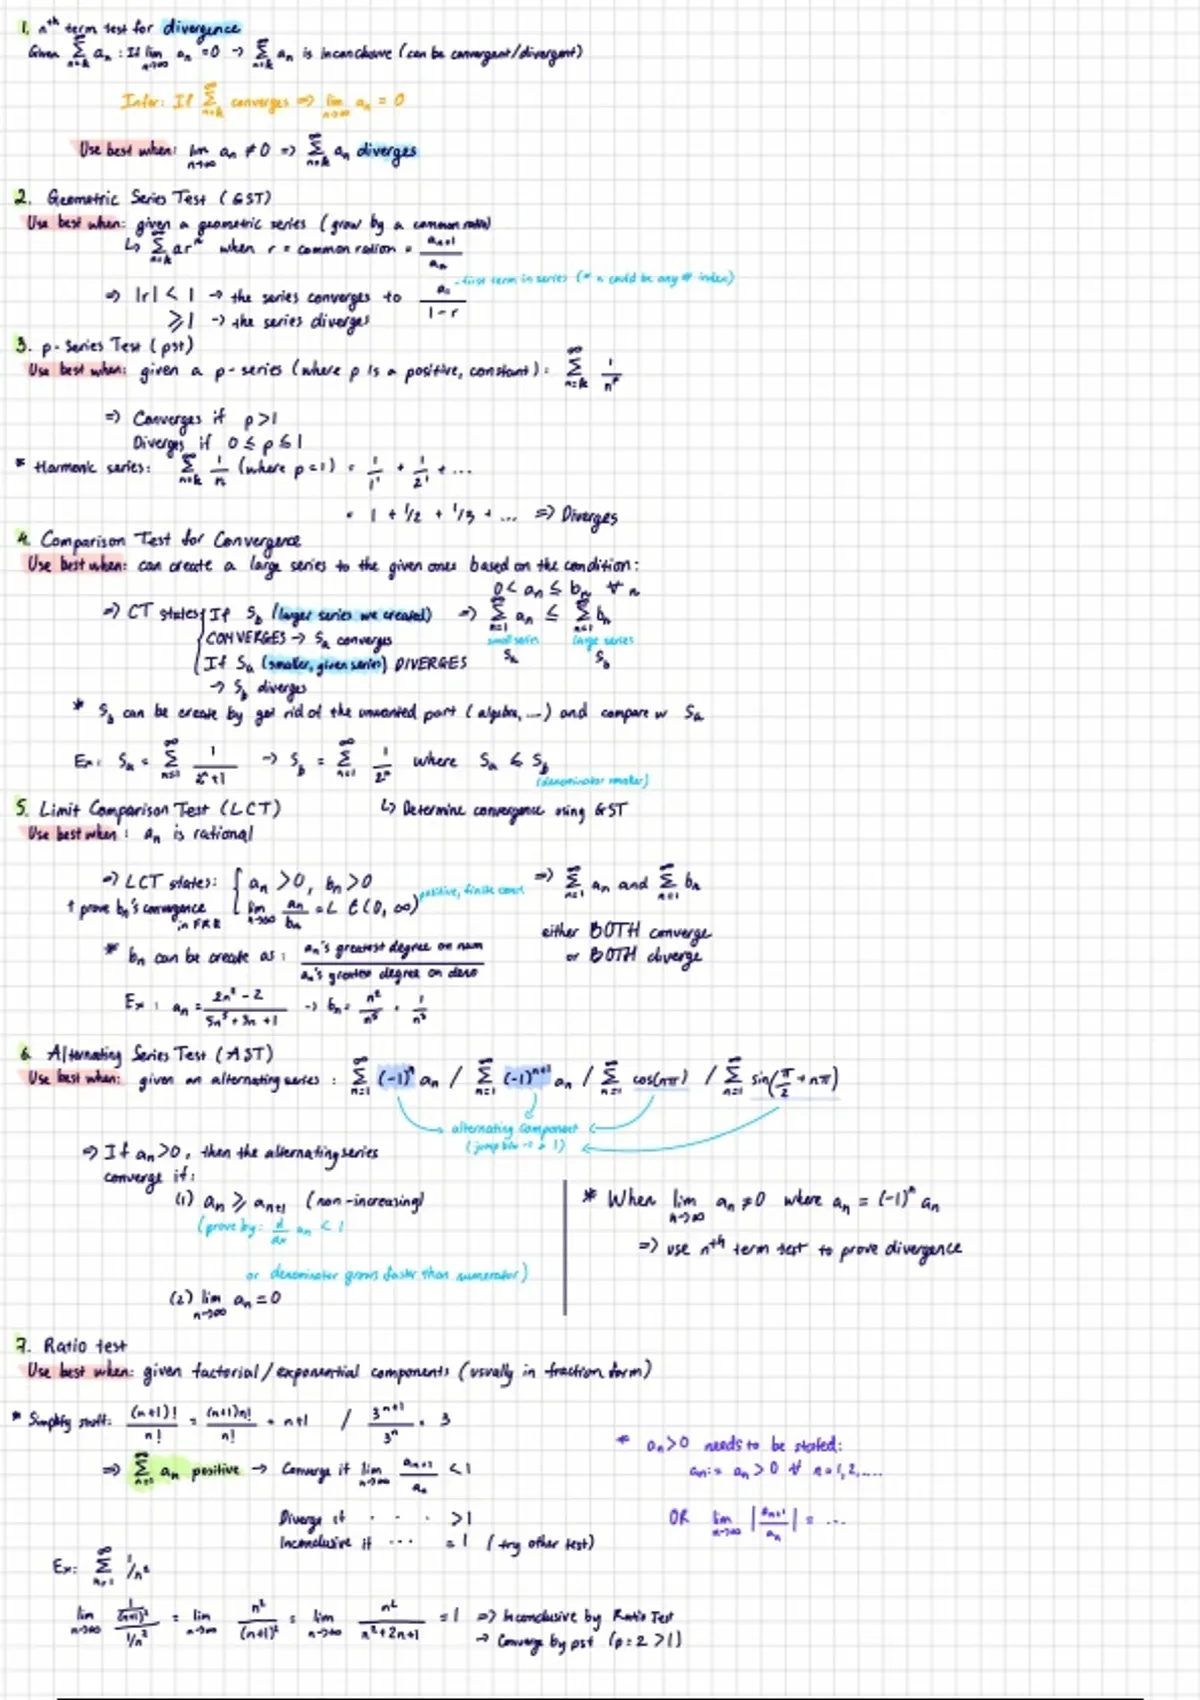 1. nᵗʰ term test for divergence
Given ∑_{n=k}^∞ aₙ : If lim_{n→∞} aₙ = 0 → ∑_{n=k}^∞ aₙ is inconclusive (can be convergent/divergent)
Infer: If ∑_{n=k}^∞ converges => lim_{n→∞} aₙ = 0
Use best when: lim_{n→∞} aₙ ≠ 0 => ∑_{n=k}^∞ aₙ diverges
2. Geometric Series Test (GST)
Use best when: given a geometric series (grow by a common ratio)
↳ ∑_{n=k}^∞ arⁿ when r = common ration = aₙ₊₁ / aₙ
- first term in series (* n could be any # index)
=> |r| < 1 → the series converges to a₁ / (1 - r)
≥ 1 → the series diverges
3. p - Series Test (pst)
Use best when: given a p-series (where p is a positive, constant): ∑_{n=k}^∞ 1/nᵖ
=> Converges if p > 1
Diverges if 0 ≤ p ≤ 1
* Harmonic series: ∑_{n=k}^∞ 1/n (where p = 1) = 1/1¹ + 1/2¹ + ...
= 1 + 1/2 + 1/3 + ... => Diverges
4. Comparison Test for Convergence
Use best when: can create a large series to the given ones based on the condition:
0 < aₙ ≤ bₙ ∀ n
=> CT states { If S_b (larger series we created) => ∑_{n=1}^∞ aₙ ≤ ∑_{n=1}^∞ bₙ
CONVERGES → Sₐ converges small series large series
If Sₐ (smaller, given series) DIVERGES Sₐ S_b
→ S_b diverges
* S_b can be create by get rid of the unwanted part (algebra, ...) and compare w Sₐ
Ex: Sₐ = ∑_{n=1}^∞ 1 / (2ⁿ + 1) → S_b = ∑_{n=1}^∞ 1/2ⁿ where Sₐ ≤ S_b
(denominator smaller)
↳ Determine convergence using GST
5. Limit Comparison Test (LCT)
Use best when: aₙ is rational
=> LCT states: { aₙ > 0, bₙ > 0 => ∑_{n=1}^∞ aₙ and ∑_{n=1}^∞ bₙ
lim_{n→∞} aₙ/bₙ = L ∈ (0, ∞) positive, finite const.
† prove bₙ's convergence in FRQ
either BOTH converge
or BOTH diverge
* bₙ can be create as: aₙ's greatest degree on num / aₙ's greatest degree on deno
Ex: aₙ = (2n² - 2) / (5n⁵ + 3n + 1) → bₙ = n²/n⁵ = 1/n³
6. Alternating Series Test (AST)
Use best when: given an alternating series: ∑_{n=1}^∞ (-1)ⁿ aₙ / ∑_{n=1}^∞ (-1)ⁿ⁺¹ aₙ / ∑_{n=1}^∞ cos(nπ) / ∑_{n=1}^∞ sin(π/2 + nπ)
alternating component
(jump b/w -1 & 1)
=> If aₙ > 0, then the alternating series
converge if:
(1) aₙ ≥ aₙ₊₁ (non-increasing)
(prove by: d/dn aₙ < 1
or denominator grows faster than numerator)
(2) lim_{n→∞} aₙ = 0
* When lim_{n→∞} aₙ ≠ 0 where aₙ = (-1)ⁿ aₙ
=> use nᵗʰ term test to prove divergence
7. Ratio test
Use best when: given factorial/exponential components (usually in fraction form)
* Simplify stuff: (n+1)! / n! = (n+1)n! / n! = n+1 / 3ⁿ⁺¹ / 3ⁿ = 3
=> ∑_{n=1}^∞ aₙ positive → Converge if lim_{n→∞} aₙ₊₁ / aₙ < 1
Diverge if · · · > 1
Inconclusive if ··· = 1 (try other test)
* aₙ > 0 needs to be stated:
aₙ > 0 ∀ n = 1, 2, ....
OR lim_{n→∞} |aₙ₊₁ / aₙ| = ...
Ex: ∑_{n=1}^∞ 1/n²
lim_{n→∞} (1/(n+1)²) / (1/n²) = lim_{n→∞} n² / (n+1)² = lim_{n→∞} n² / (n² + 2n + 1) = 1 => Inconclusive by Ratio Test
→ Converge by pst (p = 2 > 1)